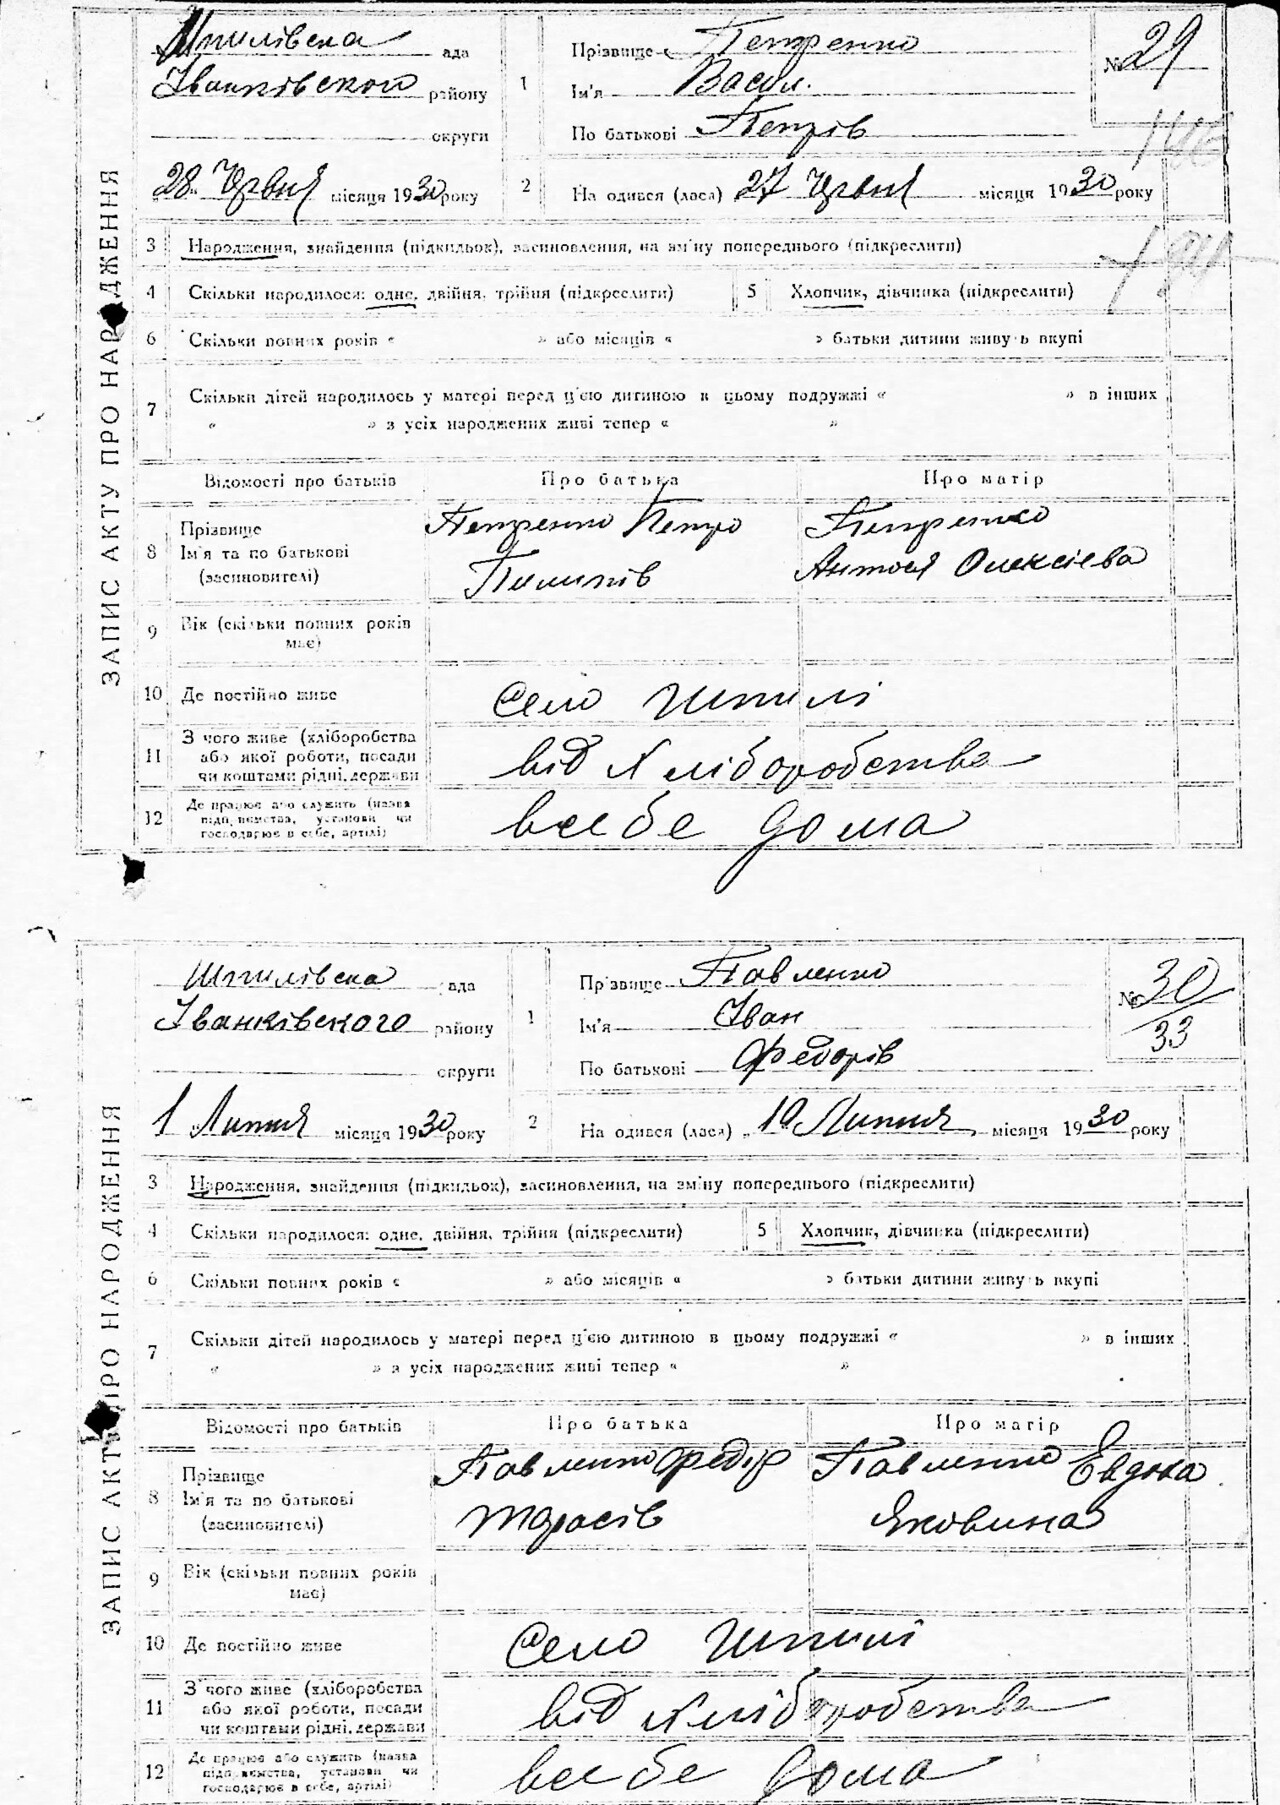 ЗАПИС АКТУ ПРО НАРОДЖЕННЯ
Шпилівска рада
Іванківского району
округи
1 Прізвище Петренко
Ім'я Васил.
По батькові Петрів
№ 29
28 Червня місяця 1930 року
2 На одився (лася) 27 Червня місяця 1930 року
3 Народження, знайдення (підкидьок), засиновлення, на зміну попереднього (підкреслити)
4 Скільки народилося: одне, двійня, трійня (підкреслити)
5 Хлопчик, дівчинка (підкреслити)
6 Скільки повних років « » або місяців « » батьки дитини живуть вкупі
7 Скільки дітей народилось у матері перед ц'єю дитиною в цьому подружжі « » в інших
« » з усіх народжених живі тепер « »
Відомості про батьків Про батька Про матір
8 Прізвище
Ім'я та по батькові
(засиновителі)
Петренко Петро
Пилипів
Петренко
Антося Олексієва
9 Вік (скільки повних років
має)
10 Де постійно живе село Шпилі
11 З чого живе (хліборобства
або якої роботи, посади
чи коштами рідні, держави
від хліборобства
12 Де працює або служить (назва
підприємства, установи чи
господарює в себе, артілі)
всебе дома
ЗАПИС АКТУ ПРО НАРОДЖЕННЯ
Шпилівска рада
Іванківского району
округи
1 Прізвище Павленко
Ім'я Іван
По батькові Федорів
№ 30
33
1 Липня місяця 1930 року
2 На одився (лася) Липня місяця 1930 року
3 Народження, знайдення (підкидьок), засиновлення, на зміну попереднього (підкреслити)
4 Скільки народилося: одне, двійня, трійня (підкреслити)
5 Хлопчик, дівчинка (підкреслити)
6 Скільки повних років « » або місяців « » батьки дитини живуть вкупі
7 Скільки дітей народилось у матері перед ц'єю дитиною в цьому подружжі « » в інших
« » з усіх народжених живі тепер « »
Відомості про батьків Про батька Про матір
8 Прізвище
Ім'я та по батькові
(засиновителі)
Павленко Федір
Тарасів
Павленко Евдоха
Яковина
9 Вік (скільки повних років
має)
10 Де постійно живе село Шпилі
11 З чого живе (хліборобства
або якої роботи, посади
чи коштами рідні, держави
від хліборобства
12 Де працює або служить (назва
підприємства, установи чи
господарює в себе, артілі)
всебе дома